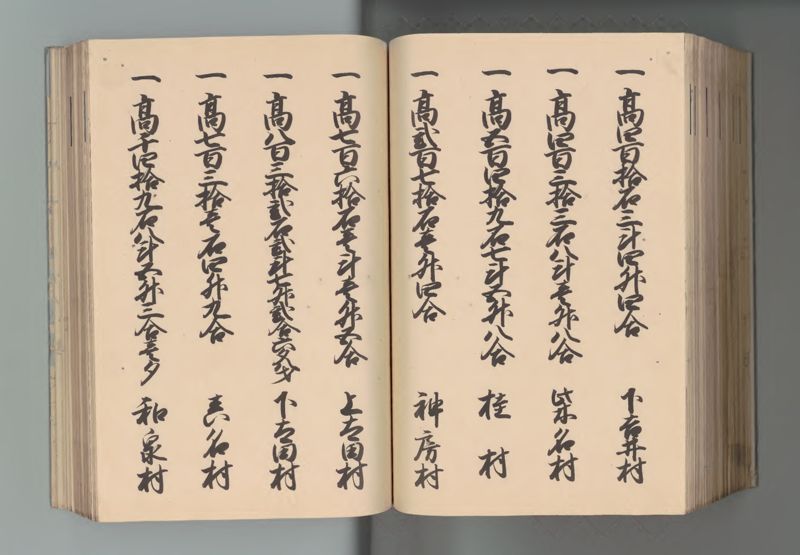 一 高四百拾石三斗四升四合 下吉井村
一 高四百三拾三石八斗壱升八合 柴名村
一 高五百四拾九石七斗五升八合 桂村
一 高弐百七拾石壱升四合 神房村
一 高七百六拾石壱斗壱升五合 上太田村
一 高八百三拾弐石弐斗七升弐合六夕才 下太田村
一 高七百三拾壱石四升九合 真名村
一 高千四拾九石八斗五升三合壱夕 和泉村